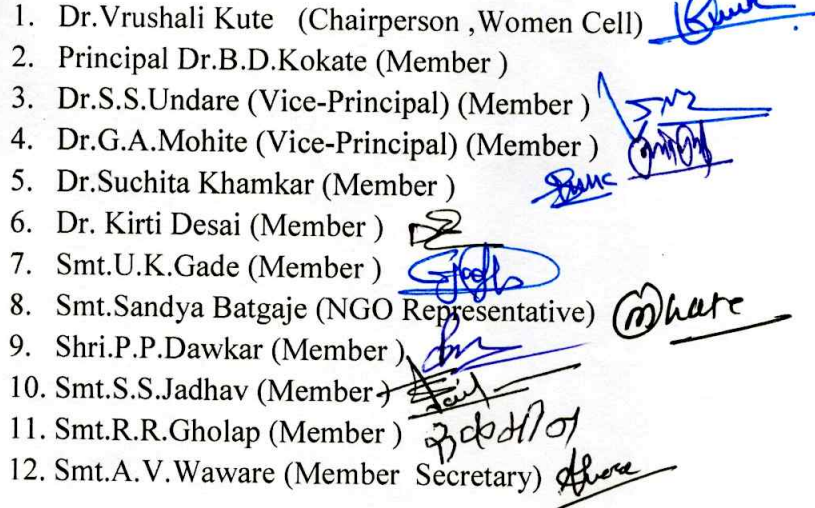 1. Dr.Vrushali Kute (Chairperson ,Women Cell)
2. Principal Dr.B.D.Kokate (Member )
3. Dr.S.S.Undare (Vice-Principal) (Member )
4. Dr.G.A.Mohite (Vice-Principal) (Member )
5. Dr.Suchita Khamkar (Member )
6. Dr. Kirti Desai (Member )
7. Smt.U.K.Gade (Member )
8. Smt.Sandya Batgaje (NGO Representative)
9. Shri.P.P.Dawkar (Member )
10. Smt.S.S.Jadhav (Member )
11. Smt.R.R.Gholap (Member )
12. Smt.A.V.Waware (Member Secretary)